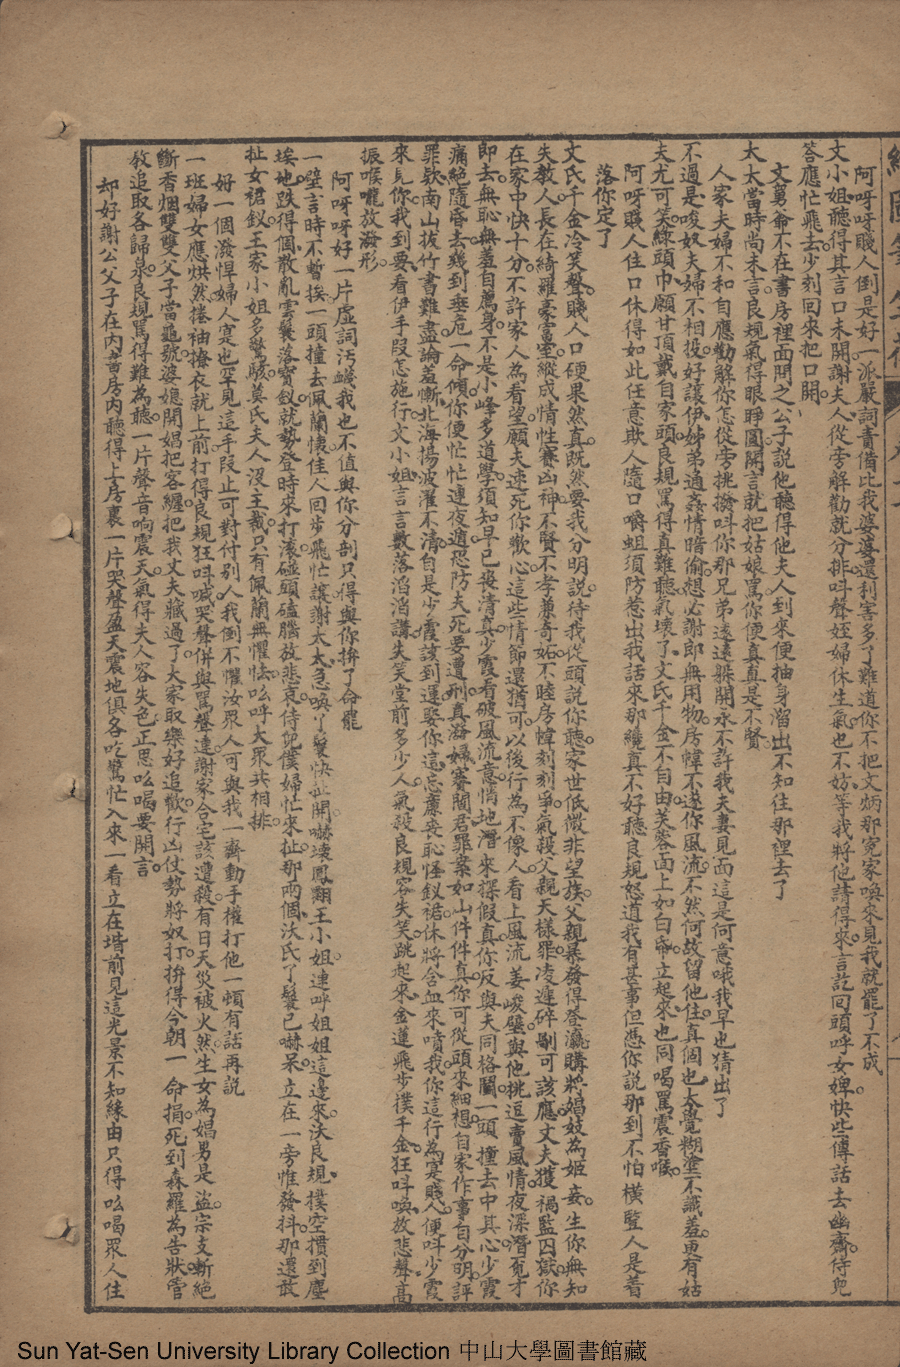 阿呀呀賤人倒是好一派嚴詞書借比我婆婆還利害多了難道你不把文炳那冤家喚來見我就罷了不成
文小姐聽得其言口未開謝夫人從旁解勸就分排呌聲姪婦休生氣也不妨等我將他請得來言訖回頭呼女婢快些傳話去幽齋侍兒
答應忙飛去少刻回來把口開
文舅爺不在書房裡面問之公子說他聽得他夫人到來便抽身溜出不知住那裡去了
太太當時尚未言良規氣得眼睜圓開言就把姑娘罵你便真真是不賢
人家夫婦不和自應勸解你怎從旁挑撥呌你那兄弟遠遠躲開永不許我夫妻見面這是何意哦我早也猜出了
不過是唆奴夫婦不相投好讓伊姊弟通姦情暗偷想必謝郎無用物房幃不遂你風流不然何故留他住真個也太覺糊塗不識羞更有姑
夫尤可笑綠頭巾願甘頂戴自家頭良規罵得真難聽氣壞了文氏千金不自由芙蓉面上如白帋立起來也同喝罵震香喉
阿呀賤人住口休得如此任意欺人隨口嚼蛆須防惹出我話來那纔真不好聽良規怒道我有甚事但憑你說那到不怕橫豎人是着
落你定了
文氏千金冷笑聲賤人口硬果然真既然要我分明説待我從頭說你聽家世低微非望族父親暴發得登瀛購將娼妓為姬妾生你無知
失教人長在綺羅豪富室縱成情性賽凶神不賢不孝兼奇妬不睦房幃刻刻爭氣殺父親天樣罪凌遲碎剮可該應丈夫獲禍監囚獄你
在家中快十分不許家人為看望願夫速死你歡心這些情節還猶可以後行為不像人看上風流姜峻璧與他挑逗賣風情夜深潛寃才
郎去無恥無羞自薦身不是小峰多道學須知早已褻清真少霞看破風流意悄地潛來探假真你反與夫同格鬭一頭撞去中其心少霞
痛絕隨昏去幾到垂危一命傾你便忙忙連夜遁恐防夫死要遭刑真潑婦賽閻君罪案如山件件真你可從頭來細想自家作事自分明評
罪欵南山拔竹書難盡論羞慚北海揚波濯不清自是少霞該到運娶你這忘㢘喪恥怪釵裙休將含血來噴我你這行為寔賤人便呌少霞
來見你我到要看伊手段怎施行文小姐言言數落滔滔講失笑堂前多少人氣殺良規容失笑跳起來金蓮飛步撲千金狂呌喚放悲聲高
振喉嚨放潑形
阿呀呀好一片虛詞汚衊我也不值與你分剖只得與你拚了命罷
一壁言時不暫挨一頭撞去佩蘭懷佳人回步飛忙讓謝太太急喚丫鬟快扯開嚇壞鳳翾王小姐連呼姐姐這邊來沃良規撲空摜到塵
埃地跌得個散亂雲鬟落寳釵就勢登時來打滾碰頭磕腦放悲哀侍兒僕婦忙來扯那兩個沃氏丫鬟已嚇呆立在一旁惟發抖那還敢
扯女裙釵王家小姐多驚駭莫氏夫人沒主裁只有佩蘭無懼怯吆呼大眾共相排
好一個潑悍婦人寔也罕見這手段止可對付別人我倒不懼汝眾人可與我一齊動手權打他一頓有話再説
一班婦女應烘然捲袖撩衣就上前打得良規狂呌喊哭聲併與罵聲連謝家合宅該遭殺有日天災被火燃生女為娼男是盜宗支斬絕
斷香烟雙雙父子當龜號婆媳開娼把客纏把我丈夫藏過了大家取樂好追歡行凶仗勢將奴打拚得今朝一命捐死到森羅為告狀管
教追取各歸泉良規罵得難為聽一片聲音响震天氣得夫人容失色正思吆喝要開言
却好謝公父子在內書房內聽得上房裏一片哭聲盈天震地俱各吃驚忙入來一看立在堦前見這光景不知緣由只得吆喝眾人住
Sun Yat-Sen University Library Collection 中山大學圖書館藏